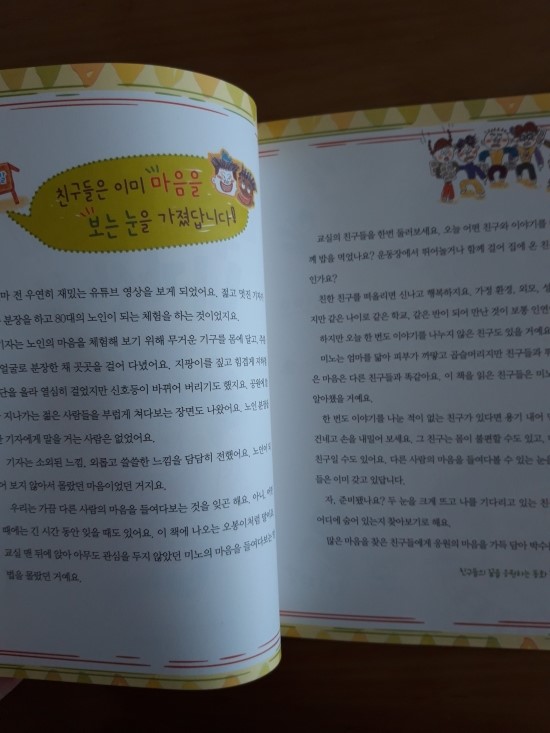 친구들은 이미 마음을
보는 눈을 가졌답니다!
마 전 우연히 재밌는 유튜브 영상을 보게 되었어요. 젊고 멋진
분장을 하고 80대의 노인이 되는 체험을 하는 것이었지요.
기자는 노인의 마음을 체험해 보기 위해 무거운 기구를 몸에 달고,
얼굴로 분장한 채 곳곳을 걸어 다녔어요. 지팡이를 짚고 힘겹게
단을 올라 열심히 걸었지만 신호등이 바뀌어 버리기도 했지요.
지나가는 젊은 사람들을 부럽게 쳐다보는 장면도 나왔어요. 노인
기자에게 말을 거는 사람은 없었어요.
기자는 소외된 느낌, 외롭고 쓸쓸한 느낌을 담담히 전했어요.
어 보지 않아서 몰랐던 마음이었던 거지요.
우리는 가끔 다른 사람의 마음을 들여다보는 것을 잊곤 해요. 아니,
때에는 긴 시간 동안 잊을 때도 있어요. 이 책에 나오는 오봉이처럼
교실 맨 뒤에 앉아 아무도 관심을 두지 않았던 미노의 마음을 들여다보는
법을 몰랐던 거예요.
교실의 친구들을 한번 둘러보세요. 오늘 어떤 친구와 이야기를
께 밥을 먹었나요? 운동장에서 뛰어놀거나 함께 걸어 집에 온 친
인가요?
친한 친구를 떠올리면 신나고 행복하지요. 가정 환경, 외모, 성
지만 같은 나이로 같은 학교, 같은 반이 되어 만난 것이 보통 인연
하지만 오늘 한 번도 이야기를 나누지 않은 친구도 있을 거예요
미노는 엄마를 닮아 피부가 까맣고 곱슬머리지만 친구들과
은 마음은 다른 친구들과 똑같아요. 이 책을 읽은 친구들은 미노
알아챘을 거예요.
한 번도 이야기를 나눈 적이 없는 친구가 있다면 용기 내어
건네고 손을 내밀어 보세요. 그 친구는 몸이 불편할 수도 있고,
친구일 수도 있어요. 다른 사람의 마음을 들여다볼 수 있는 눈을
들은 이미 갖고 있답니다.
자, 준비됐나요? 두 눈을 크게 뜨고 나를 기다리고 있는 친
어디에 숨어 있는지 찾아보기로 해요.
많은 마음을 찾은 친구들에게 응원의 마음을 가득 담아 박수
친구들의 삶을 응원하는 동화